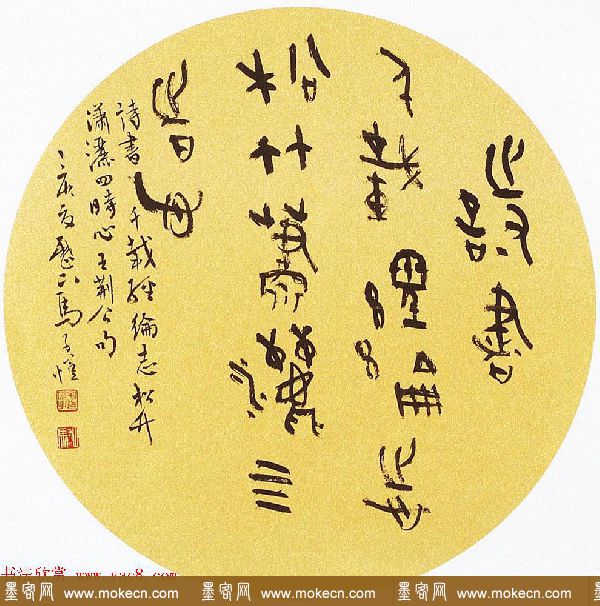 詩書
千載經綸志
松竹瀟灑四
時心
詩書千載經綸志松竹
瀟灑四時心王荊公句
丁亥夏歷下馬子愷
书法欣赏 www.yac8.com
墨客网 www.mokecn.com 墨客网 www.mokecn.com 墨客网 www.mokecn.com